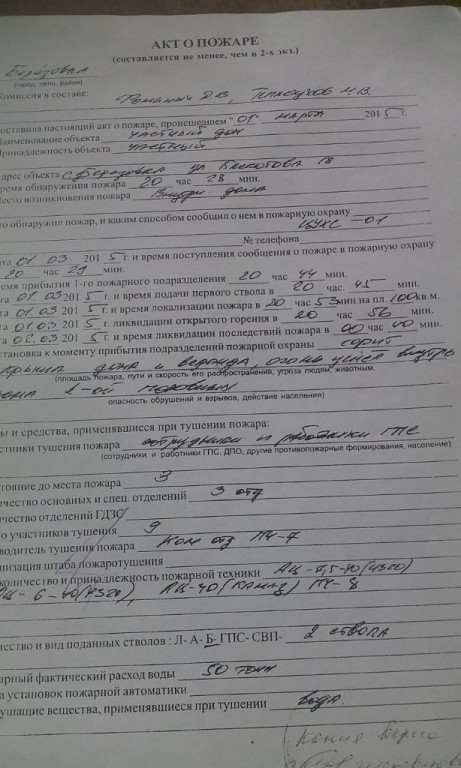 АКТ О ПОЖАРЕ
(составляется не менее, чем в 2-х экз.)
Берёзовка
(город, село, район)
Комиссия в составе:
составила настоящий акт о пожаре, происшедшем "01" марта 2015 г.
Наименование объекта частный дом
Принадлежность объекта частный
адрес объекта с. Березовка ул 18
время обнаружения пожара 20 час 28 мин.
место возникновения пожара Внутри дома
то обнаружил пожар, и каким способом сообщил о нем в пожарную охрану
-01
№ телефона
ата 01.03 2015 г. и время поступления сообщения о пожаре в пожарную охрану
20 час 29 мин.
емя прибытия 1-го пожарного подразделения 20 час 44 мин.
ата 01.03 2015 г. и время подачи первого ствола в 20 час. 45 мин.
ата 01.03 2015 г. и время локализации пожара в 20 час 53 мин на пл. 100 кв.м.
ата 01.03 2015 г. ликвидации открытого горения в 20 час 56 мин.
ата 02.03 2015 г. и время ликвидации последствий пожара в 00 час 40 мин.
становка к моменту прибытия подразделений пожарной охраны горит
крыша дома и веранда, огонь ушел внутрь
(площадь пожара, пути и скорость его распространения, угроза людям, животным,
дома 2-ой половины
опасность обрушений и взрывов, действие населения)
ы и средства, применявшиеся при тушении пожара:
стники тушения пожара сотрудники и работники ГПС
(сотрудники и работники ГПС, ДПО, другие противопожарные формирования, население)
стояние до места пожара 3
ичество основных и спец. отделений 3 отд
ичество отделений ГДЗС
о участников тушения 9
водитель тушения пожара Ком отд ПЧ-7
низация штаба пожаротушения
количество и принадлежность пожарной техники АЦ-
АЦ-6-40 АЦ-40 (КАМАЗ) ПЧ-8
чество и вид поданных стволов : Л- А- Б- ГПС- СВП- 2 ствола
арный фактический расход воды 50 тонн
а установок пожарной автоматики
ушащие вещества, применявшиеся при тушении вода.
Копия верна